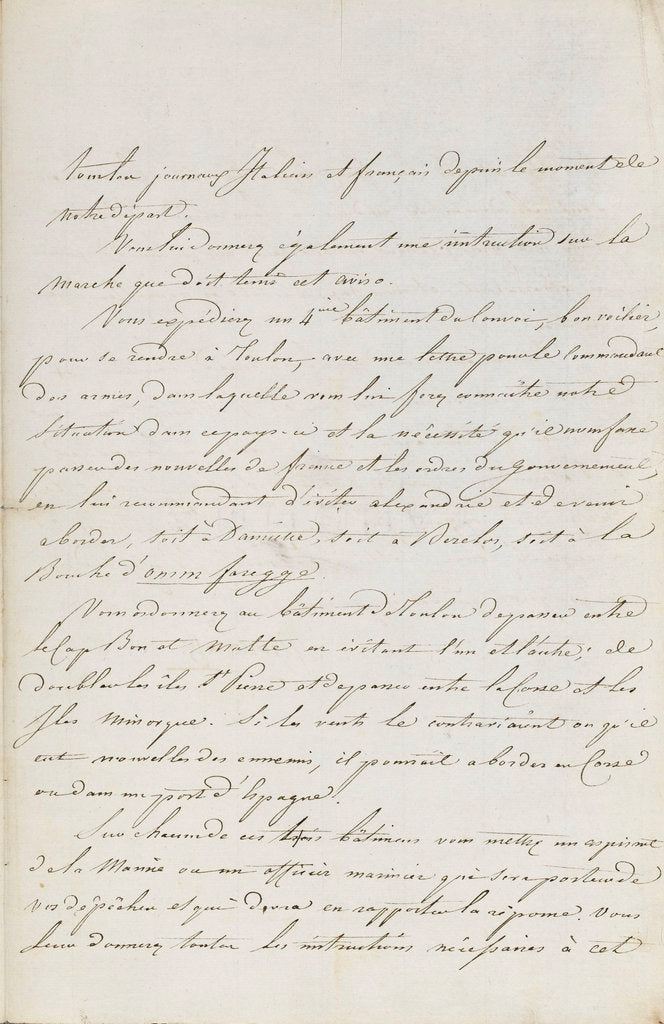 tous les journaux Italiens et français depuis le moment de
notre départ.
Vous lui donnerez également une instruction sur la
marche que doit tenir cet aviso.
Vous expédierez un 4ime bâtiment du Convoi, bon voilier,
pour se rendre à Toulon, avec une lettre pour le Commandant
des armes, dans laquelle vous lui ferez connaître notre
situation dans ce pays-ci et la nécessité qu'il nous fasse
passer des nouvelles de france et les ordres du Gouvernement,
en lui recommandant d'éviter alexandrie et de venir
aborder, soit à Damiette, soit à Berelos, soit à la
Bouche d'omm faregge.
Vous ordonnerez au bâtiment de Toulon de passer entre
le Cap Bon et Malte en évitant l'un et l'autre; de
doubler les îles St Pierre et de passer entre la Corse et les
Iles Minorque. Si les vents le contrariaient ou qu'il
eut nouvelles des ennemis, il pourrait aborder en Corse
ou dans un port d'Espagne.
Sur chacun de ces trois bâtimens vous mettrez un aspirant
de la Marine ou un officier marinier qui sera porteur de
vos dépêches et qui devra en rapporter la réponse. Vous
leur donnerez toutes les instructions nécessaires à cet